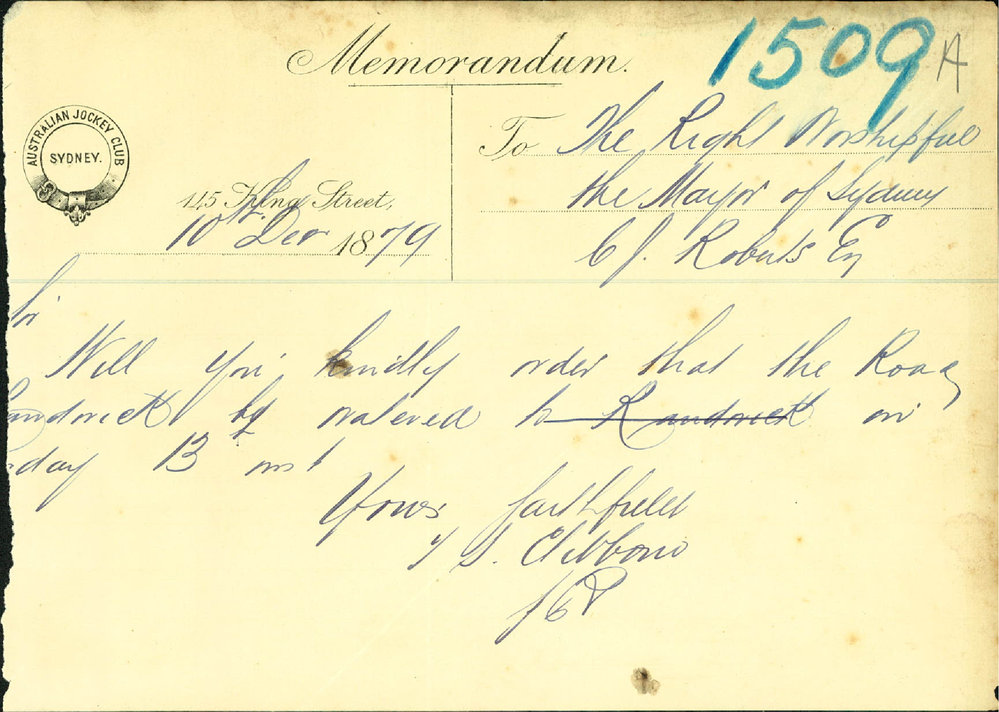 1509 A
Memorandum.
AUSTRALIAN JOCKEY CLUB
SYDNEY.
145 King Street,
10th Dec 1879
To The Right Worshipful
the Mayor of Sydney
C J. Roberts Eq
Sir
Will you kindly order that the Road
andwick be watered to ~~Randwick~~ on
day 13th inst
Yours faithfully
T S. Clibborn